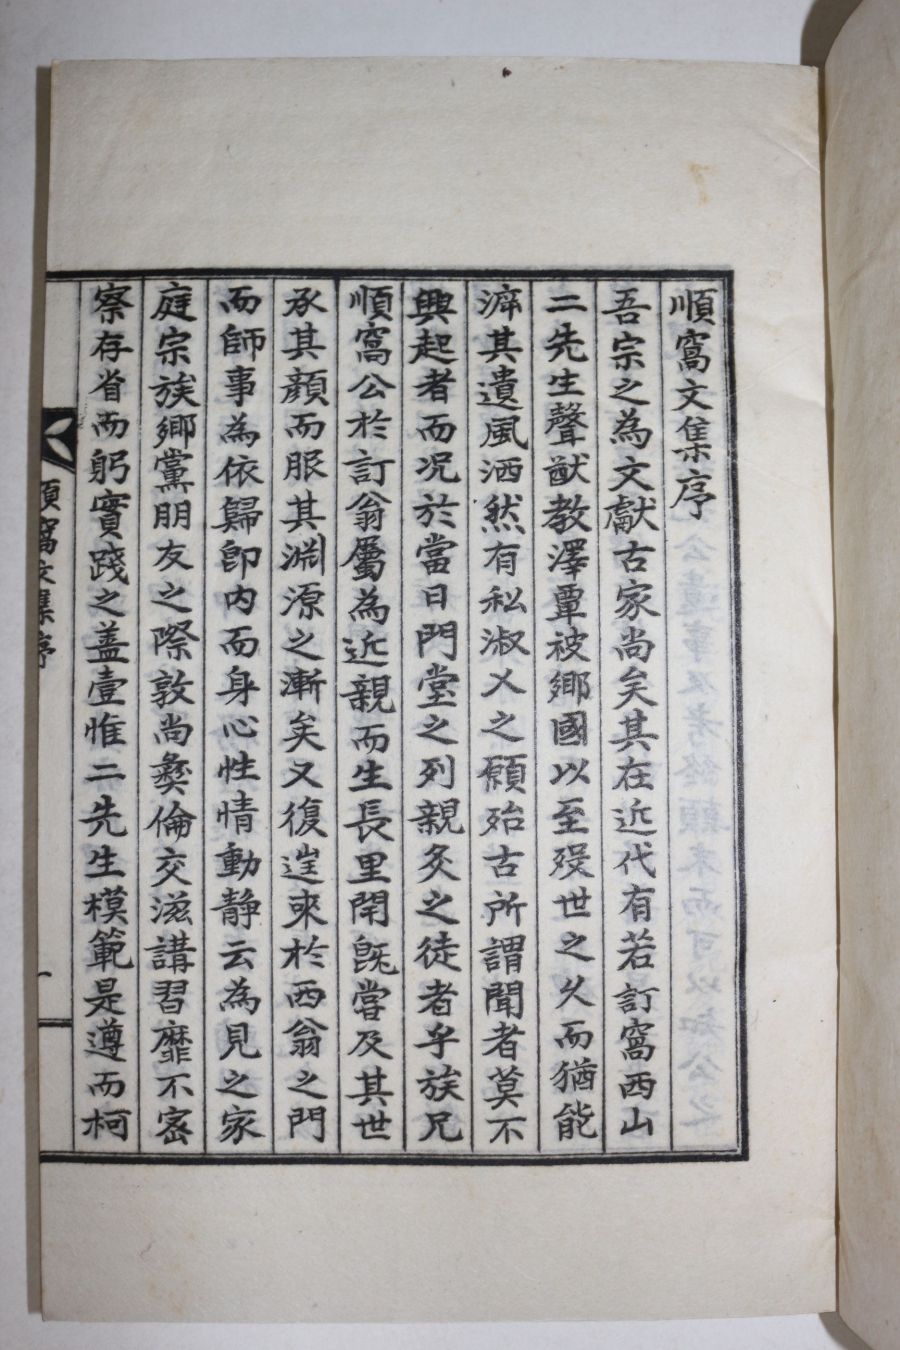 順窩文集序
吾宗之為文獻古家尚矣其在近代有若訂窩西山
二先生聲猷教澤覃被鄉國以至殁世之久而猶能
漭其遺風洒然有私淑乂之願殆古所謂聞者莫不
興起者而况於當日門堂之列親炙之徒者乎族兄
順窩公於訂翁屬為近親而生長里閈旣嘗及其世
承其顔而服其淵源之漸矣又復逞來於西翁之門
而師事為依歸卽内而身心性情動靜云為見之家
庭宗族鄉黨朋友之際敦尚彜倫交滋講習靡不密
察存省而躬實踐之盖壹惟二先生模範是遵而柯
順窩文集序
一